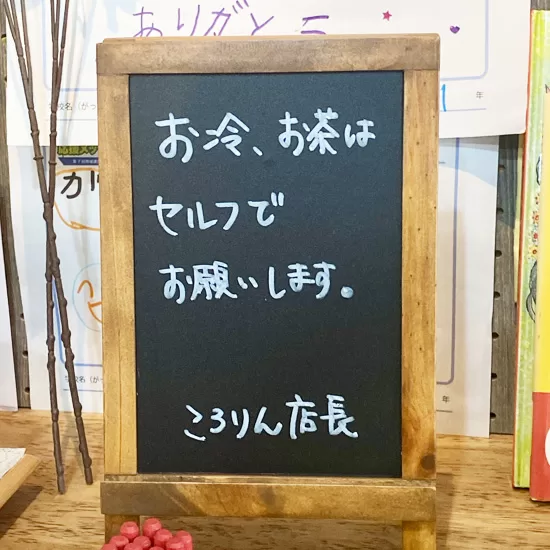 ありがとう
お冷、お茶は
セルフで
お願いします。
ころりん店長
年